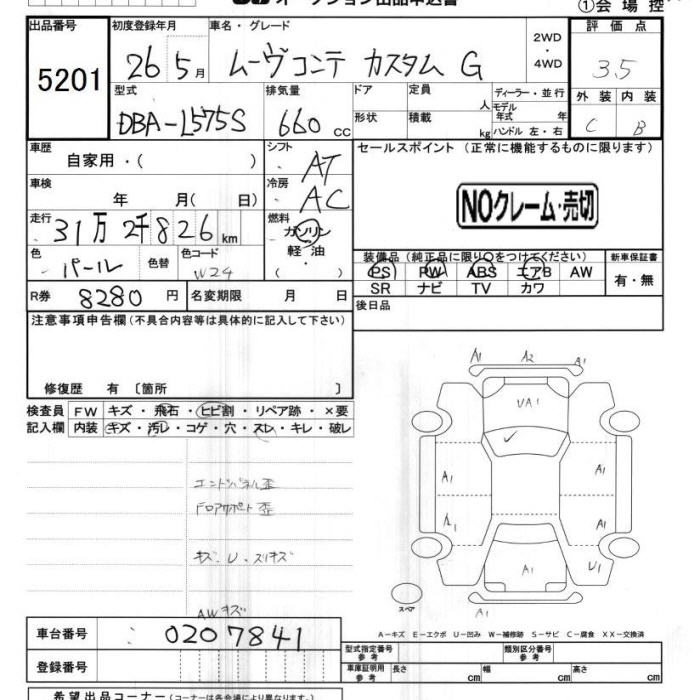 オークション出品申込書
①会場控
出品番号 初度登録年月 車名・グレード 2WD ・ 4WD 評価点
5201 26年5月 ムーヴコンテ カスタム G 3.5
型式 排気量 ドア 定員 人 ディーラー・並行 外装 内装
DBA-L575S 660cc 形状 積載 kg モデル年式 年 ハンドル 左・右 C B
車歴 シフト セールスポイント (正常に機能するものに限ります)
自家用・( ) AT
車検 冷房
年 月( 日) AC
NOクレーム・売切
走行 燃料
31万2千826km ガソリン
軽油
( )
色 色替 色コード
パール W24
装備品(純正品に限り○をつけてください) 新車保証書
PS PW ABS エアB AW 有・無
SR ナビ TV カワ
R券 8280円 名変期限 月 日 後日品
注意事項申告欄(不具合内容等は具体的に記入して下さい)
修復歴 有 〔箇所 〕
検査員 FW キズ・飛石・ヒビ割・リペア跡・×要
記入欄 内装 キズ・汚レ・コゲ・穴・スレ・キレ・破レ
A1 A2 A1
UA1
エンドパネル歪
A1 A1
Fロアサポート歪
A1 A1
キズ、U・スリキズ
A1 U1
AWキズ
スペア
A1
A-キズ E-エクボ U-凹み W-補修跡 S-サビ C-腐食 XX-交換済
車台番号 0207841
型式指定番号 類別区分番号
登録番号
車庫証明用参考 長さ cm 幅 cm 高さ cm
希望出品コーナー(コーナーは各会場により異なります。)